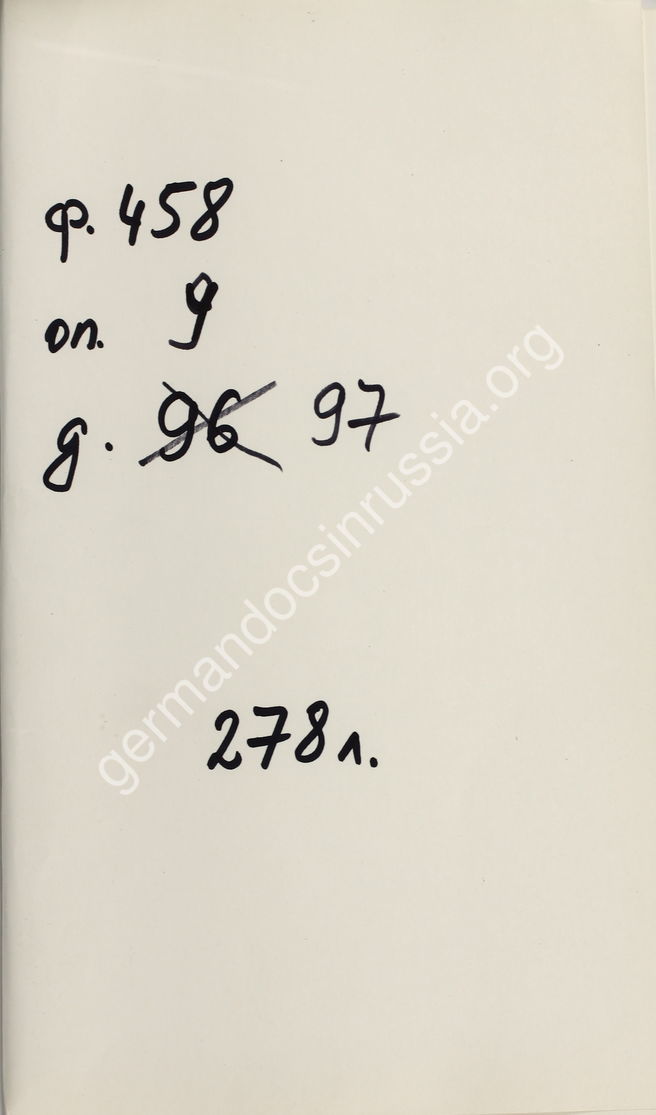 ф. 458
оп. 9
д. 96 97
germandocsinrussia.org
278 л.